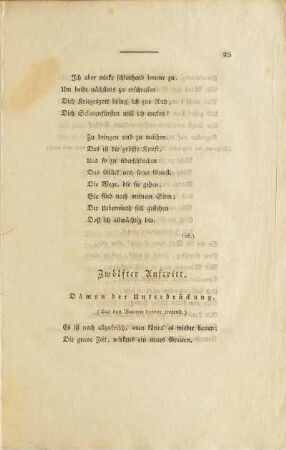 25
Ich aber wirke schleichend immer zu,
Um beide nächstens zu erschrecken:
Dich Kriegesgott bring' ich zur Ruh,
Dich Sclavenfürsten will ich wecken!
Zu dringen und zu weichen,
Das ist die größte Kunst,
Und so zu überschleichen
Das Glück und seine Gunst.
Die Wege, die sie gehen,
Sie sind nach meinem Sinn;
Der Uebermuth soll gestehen
Daß ich allmächtig bin.
(ab.)
Zwölfter Auftritt.
Dämon der Unterdrückung.
(Aus den Ruinen hervor tretend.)
Es ist noch allzufrisch, man könnt' es wieder bauen;
Die graue Zeit, wirkend ein neues Grauen,